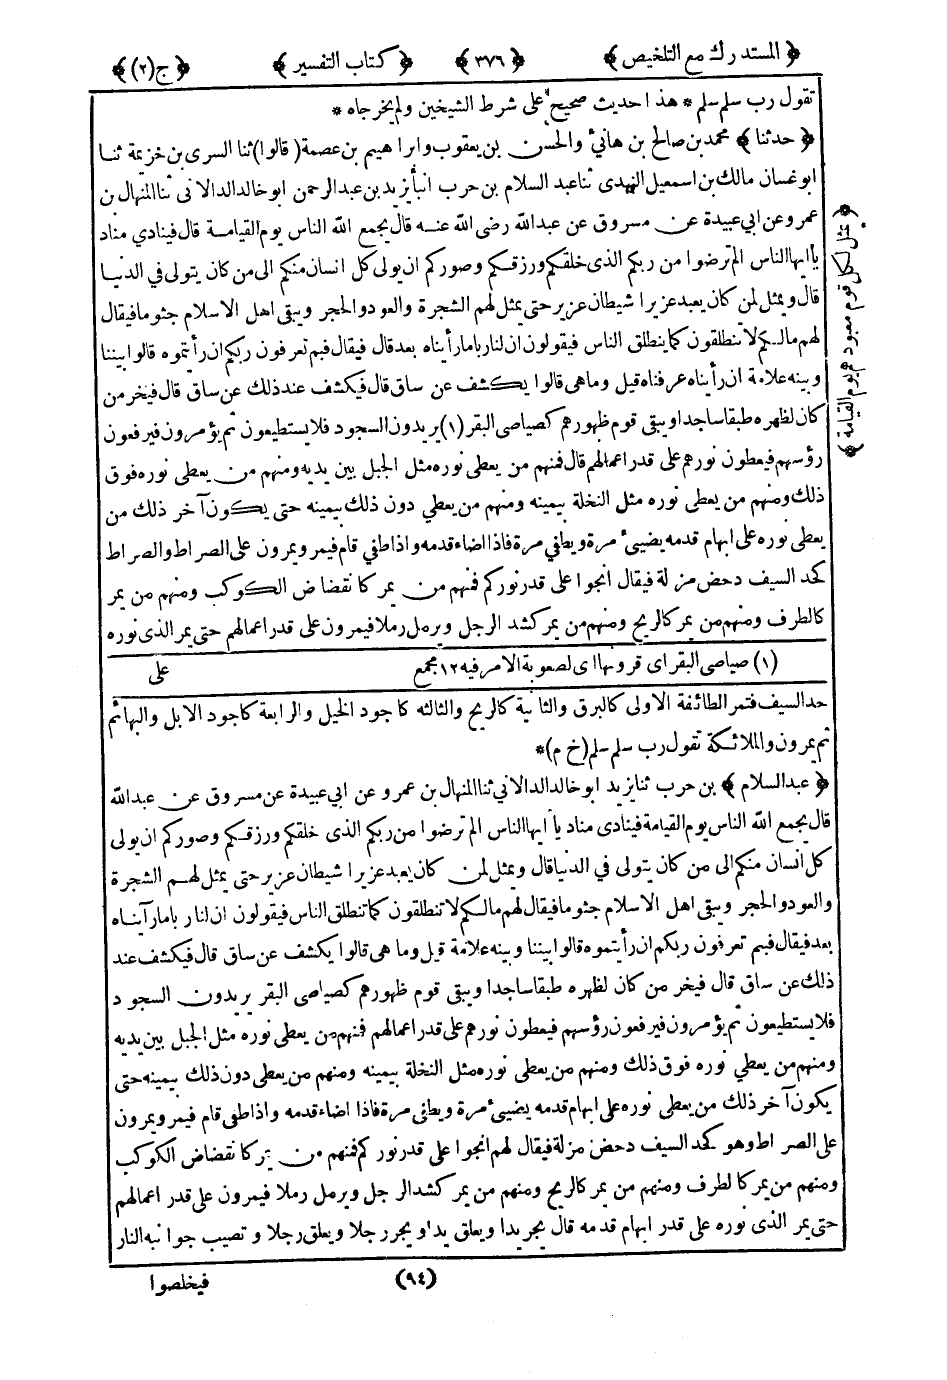 ﴿ المستدرك مع التلخيص ﴾ ﴿ ٣٧٦ ﴾ ﴿ كتاب التفسير ﴾ ﴿ ج (٢) ﴾
تقول رب سلم سلم * هذا حديث صحيح على شرط الشيخين ولم يخرجاه *
﴿ حدثنا ﴾ محمد بن صالح بن هانئ والحسن بن يعقوب وابراهيم بن عصمة (قالوا) ثنا السرى بن خزيمة ثنا
ابو غسان مالك بن اسمعيل النهدى ثنا عبد السلام بن حرب انبأ يزيد بن عبد الرحمن ابو خالد الدالانى ثنا المنهال بن
عمرو عن ابي عبيدة عن مسروق عن عبدالله رضى الله عنه قال يجمع الله الناس يوم القيامة قال فينادي مناد
يا ايها الناس الم ترضوا من ربكم الذى خلقكم ورزقكم وصوركم ان يولى كل انسان منكم الى من كان يتولى في الدنيا
قال ويمثل لمن كان يعبد عزيرا شيطان عزير حتى يمثل لهم الشجرة والعود والحجر ويبقى اهل الاسلام جثوما فيقال
لهم مالكم لا تنطلقون كما ينطلق الناس فيقولون ان لنا ربا ما رأيناه بعد قال فيقال فبم تعرفون ربكم ان رأيتموه قالوا بيننا
وبينه علامة ان رأيناه عرفناه قيل وما هى قالوا يكشف عن ساق قال فيكشف عند ذلك عن ساق قال فيخر من
كان لظهره طبقا ساجدا ويبقى قوم ظهورهم كصياصى البقر (١) يريدون السجود فلا يستطيعون ثم يؤمرون فيرفعون
رؤسهم فيعطون نورهم على قدر اعمالهم قال فمنهم من يعطى نوره مثل الجبل بين يديه ومنهم من يعطى نوره فوق
ذلك ومنهم من يعطى نوره مثل النخلة بيمينه ومنهم من يعطي دون ذلك بيمينه حتى يكون آخر ذلك من
يعطى نوره على ابهام قدمه يضيئ مرة ويطفي مرة فاذا اضاء قدمه واذا طفي قام فيمر ويمرون على الصراط والصراط
كحد السيف دحض مزلة فيقال انجوا على قدر نوركم فمنهم من يمر كانقضاض الكوكب ومنهم من يمر
كالطرف ومنهم من يمر كالريح ومنهم من يمر كشد الرجل ويرمل رملا فيمرون على قدر اعمالهم حتى يمر الذى نوره
(١) صياصى البقر اى قرونها اى لصعوبة الامر فيه ١٢ مجمع على
﴿ يمثل لكل قوم معبودهم يوم القيامة ﴾
حد السيف فتمر الطائفة الاولى كالبرق والثانية كالريح والثالثه كاجود الخيل والرابعة كاجود الابل والبهائم
ثم يمرون والملائكة تقول رب سلم سلم (خ م) *
﴿ عبد السلام ﴾ بن حرب ثنا يزيد ابو خالد الدالاني ثنا المنهال بن عمرو عن ابي عبيدة عن مسروق عن عبدالله
قال يجمع الله الناس يوم القيامة فينادى مناد يا ايها الناس الم ترضوا من ربكم الذى خلقكم ورزقكم وصوركم ان يولى
كل انسان منكم الى من كان يتولى في الدنيا قال ويمثل لمن كان يعبد عزيرا شيطان عزير حتى يمثل لهم الشجرة
والعود والحجر ويبقى اهل الاسلام جثوما فيقال لهم مالكم لا تنطلقون كما تنطلق الناس فيقولون ان لنا ربا ما رآيناه
بعد فيقال فبم تعرفون ربكم ان رأيتموه قالوا بيننا وبينه علامة قيل وما هى قالوا يكشف عن ساق قال فيكشف عند
ذلك عن ساق قال فيخر من كان لظهره طبقا ساجدا ويبقى قوم ظهورهم كصياصى البقر يريدون السجود
فلا يستطيعون ثم يؤمرون فيرفعون رؤسهم فيعطون نورهم على قدر اعمالهم فمنهم من يعطى نوره مثل الجبل بين يديه
ومنهم من يعطي نوره فوق ذلك ومنهم من يعطى نوره مثل النخلة بيمينه ومنهم من يعطى دون ذلك بيمينه حتى
يكون آخر ذلك من يعطى نوره على ابهام قدمه يضيئ مرة ويطفى مرة فاذا اضاء قدمه واذا طفى قام فيمر ويمرون
على الصراط وهو كحد السيف دحض مزلة فيقال لهم انجوا على قدر نوركم فمنهم من يمر كانقضاض الكوكب
ومنهم من يمر كالطرف ومنهم من يمر كالريح ومنهم من يمر كشد الرجل ويرمل رملا فيمرون على قدر اعمالهم
حتى يمر الذى نوره على قدر ابهام قدمه قال يجر يدا ويعلق يدا ويجر رجلا ويعلق رجلا وتصيب جوانبه النار
(٩٤) فيخلصوا